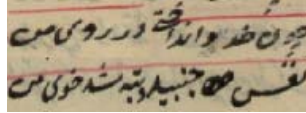 چون خد و انداخته در روی من
نفس جنبید و تبه شد خوی من